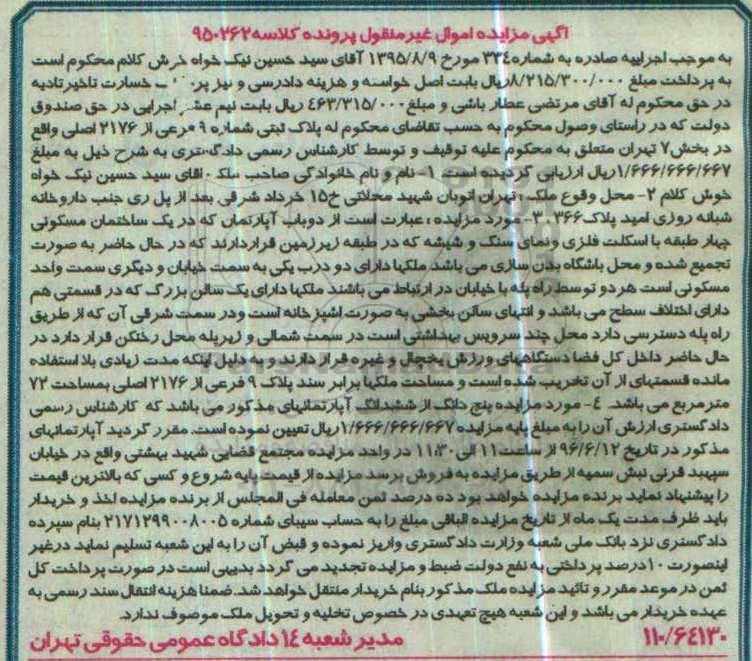 آگهی مزایده اموال غیرمنقول پرونده کلاسه ۹۵۰۲۶۲
به موجب اجراییه صادره به شماره ۳۳٤ مورخ ۱۳۹۵/۸/۹ آقای سید حسین نیک خواه خوش کلام محکوم است
به پرداخت مبلغ ۸/۲۱۵/۳۰۰/۰۰۰ریال بابت اصل خواسته و هزینه دادرسی و نیز خسارت تاخیرتادیه
در حق محکوم له آقای مرتضی عطار باشی و مبلغ ٤٦۳/۳۱۵/۰۰۰ ریال بابت نیم عشر اجرایی در حق صندوق
دولت که در راستای وصول محکوم به حسب تقاضای محکوم له پلاک ثبتی شماره ۹ فرعی از ۲۱۷۶ اصلی واقع
در بخش۷ تهران متعلق به محکوم علیه توقیف و توسط کارشناس رسمی دادگستری به شرح ذیل به مبلغ
۱/۶۶۶/۶۶۶/۶۶۷ریال ارزیابی گردیده است. ۱-نام و نام خانوادگی صاحب ملک آقای سید حسین نیک خواه
خوش کلام ۲- محل وقوع ملک: تهران اتوبان شهید محلاتی خ۱۵ خرداد شرقی بعد از پل ری جنب داروخانه
شبانه روزی امید پلاک۳۶۶ ۳-مورد مزایده: عبارت است از دوباب آپارتمان که در یک ساختمان مسکونی
چهار طبقه با اسکلت فلزی ونمای سنگ و شیشه که در طبقه زیرزمین قراردارند که در حال حاضر به صورت
تجمیع شده و محل باشگاه بدن سازی می باشد ملکها دارای دو درب یکی به سمت خیابان و دیگری سمت واحد
مسکونی است هر دو توسط راه پله با خیابان در ارتباط می باشند ملکها دارای یک سالن بزرگ که در قسمتی هم
دارای اختلاف سطح می باشد و انتهای سالن بخشی به صورت آشپزخانه است ودر سمت شرقی آن که از طریق
راه پله دسترسی دارد محل چند سرویس بهداشتی است در سمت شمالی و زیرپله محل رختکن قرار دارد در
حال حاضر داخل کل فضا دستگاههای ورزش یخچال و غیره قرار دارند و به دلیل اینکه مدت زیادی بلا استفاده
مانده قسمتهای از آن تخریب شده است و مساحت ملکها برابر سند پلاک ۹ فرعی از ۲۱۷۶ اصلی بمساحت ۷۲
مترمربع می باشد. ٤- مورد مزایده پنج دانگ از ششدانگ آپارتمانهای مذکور می باشد که کارشناس رسمی
دادگستری ارزش آن را به مبلغ پایه مزایده ۱/۶۶۶/۶۶۶/۶۶۷ریال تعیین نموده است. مقرر گردید آپارتمانهای
مذکور در تاریخ ۹۶/۶/۱۲ از ساعت۱۱ الی ۱۱.۳۰ در واحد مزایده مجتمع قضایی شهید بهشتی واقع در خیابان
سپهبد قرنی نبش سمیه از طریق مزایده به فروش برسد مزایده از قیمت پایه شروع و کسی که بالاترین قیمت
را پیشنهاد نماید برنده مزایده خواهد بود ده درصد ثمن معامله فی المجلس از برنده مزایده اخذ و خریدار
باید ظرف مدت یک ماه از تاریخ مزایده الباقی مبلغ را به حساب سیبای شماره ۲۱۷۱۲۹۹۰۰۸۰۰۵ بنام سپرده
دادگستری نزد بانک ملی شعبه وزارت دادگستری واریز نموده و قبض آن را به این شعبه تسلیم نماید درغیر
اینصورت ۱۰درصد پرداختی به نفع دولت ضبط و مزایده تجدید می گردد بدیهی است در صورت پرداخت کل
ثمن در موعد مقرر و تائید مزایده ملک مذکور بنام خریدار منتقل خواهد شد. ضمنا هزینه انتقال سند رسمی به
عهده خریدار می باشد و این شعبه هیچ تعهدی در خصوص تخلیه و تحویل ملک موصوف ندارد.
۱۱۰/۶٤۱۳۰ مدیر شعبه ۱٤ دادگاه عمومی حقوقی تهران